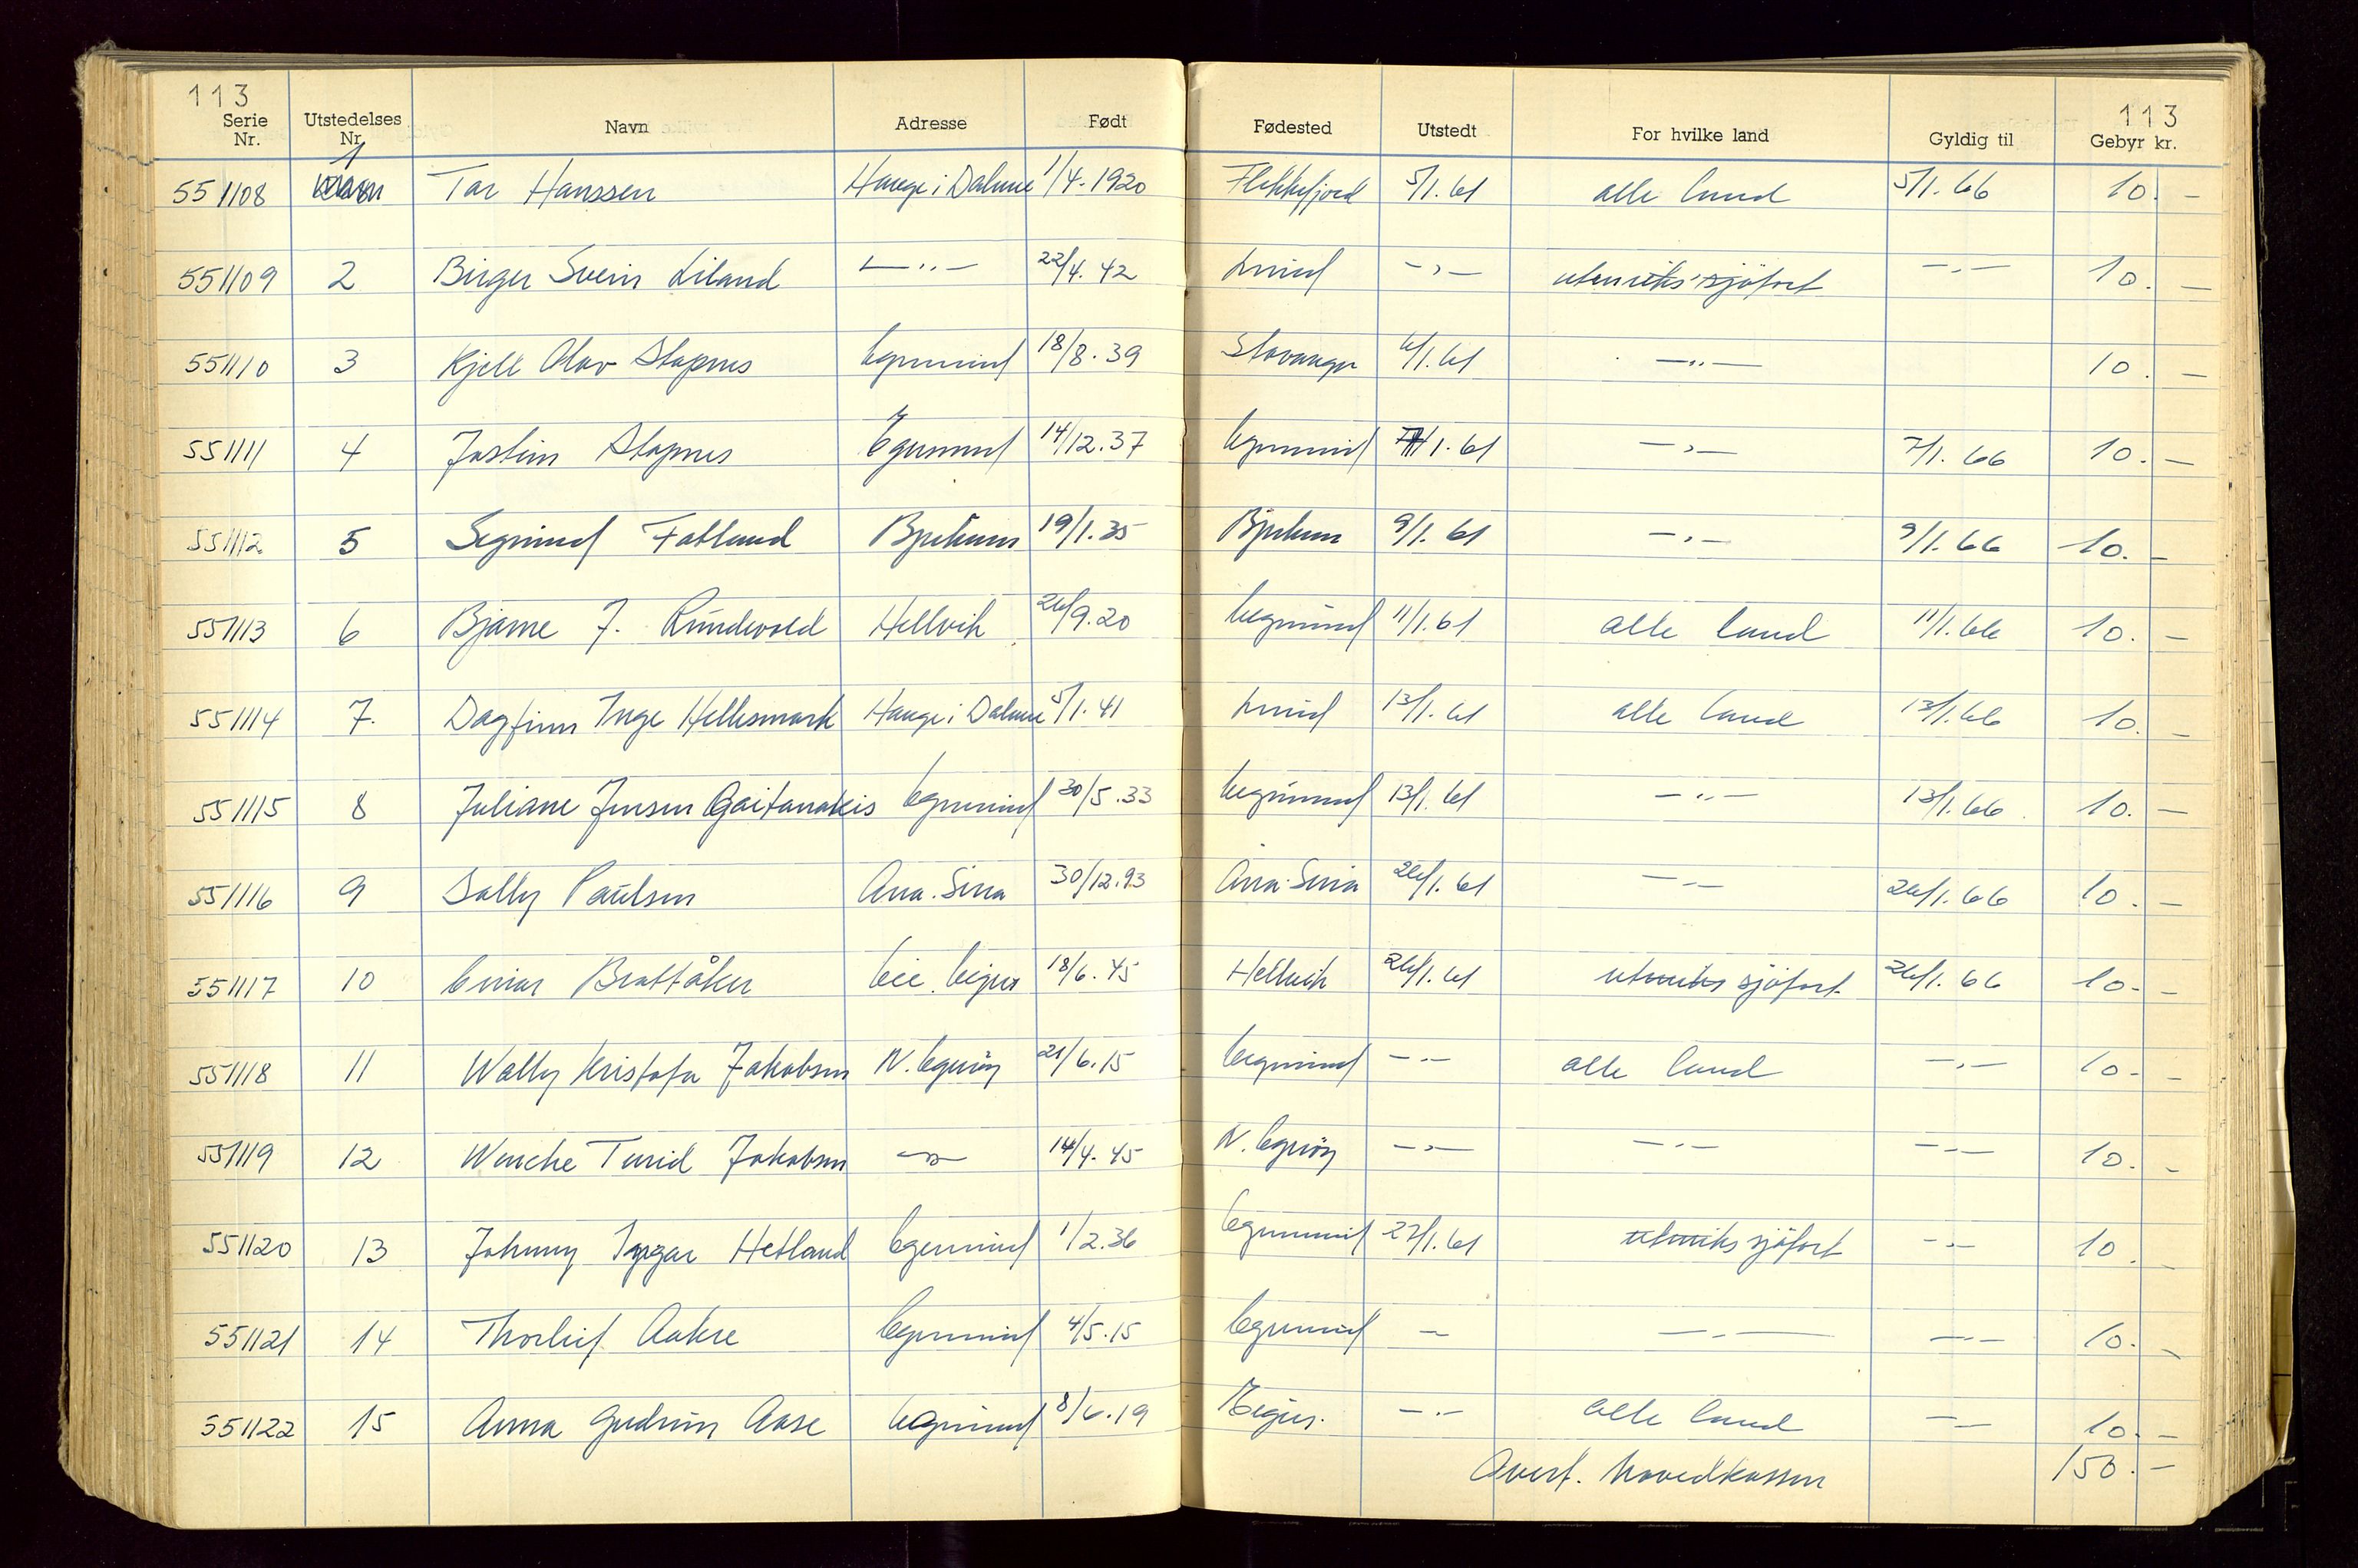 113 113
Serie Nr. Utstedelses Nr. Navn Adresse Født Fødested Utstedt For hvilke land Gyldig til Gebyr kr.
551108 1 Tor Hanssen Hauge i Dalane 1/4.1920 Flekkefjord 5/1.61 alle land 5/1.66 10.-
551109 2 Birger Svein Liland —"— 22/4.42 Lund —"— utenriks sjöfart —"— 10.-
551110 3 Kjell Olav Stapnes Egersund 18/8.39 Stavanger 6/1.61 —"— 10.-
551111 4 Jostein Stapnes Egersund 14/12.37 Egersund 7/1.61 —"— 7/1.66 10.-
551112 5 Sigmund Fatland Bjerkreim 19/1.35 Bjerkreim 9/1.61 —"— 9/1.66 10.-
551113 6 Bjarne J. Rundevold Hellvik 26/9.20 Egersund 11/1.61 alle land 11/1.66 10.-
551114 7. Dagfinn Inge Hellesmark Hauge i Dalane 5/1.41 Lund 13/1.61 alle land 13/1.66 10.-
551115 8 Juliane Jensen Gaitanakis Egersund 30/5.33 Egersund 13/1.61 —"— 13/1.66 10.-
551116 9 Sally Paulsen Ana-Sira 30/12.93 Ana-Sira 26/1.61 —"— 26/1.66 10.-
551117 10 Einar Brattåker Eie, Egers 18/6.45 Hellvik 26/1.61 utenriks sjöfart 26/1.66 10.-
551118 11 Wally Kristofa Jakobsen N. Eigerøy 21/6.15 Egersund —"— alle land —"— 10.-
551119 12 Wenche Turid Jakobsen —"— 14/4.45 N. Eigerøy —"— —"— —"— 10.-
551120 13 Johnny Ingar Hetland Egersund 1/2.36 Egersund 27/1.61 utenriks sjöfart —"— 10.-
551121 14 Thorleif Aakre Egersund 4/5.15 Egersund — —"— —"— 10.-
551122 15 Anna Gudrun Aase Egersund 8/6.19 —"— alle land —"— 10.-
Overf. hovedkassen 150.-